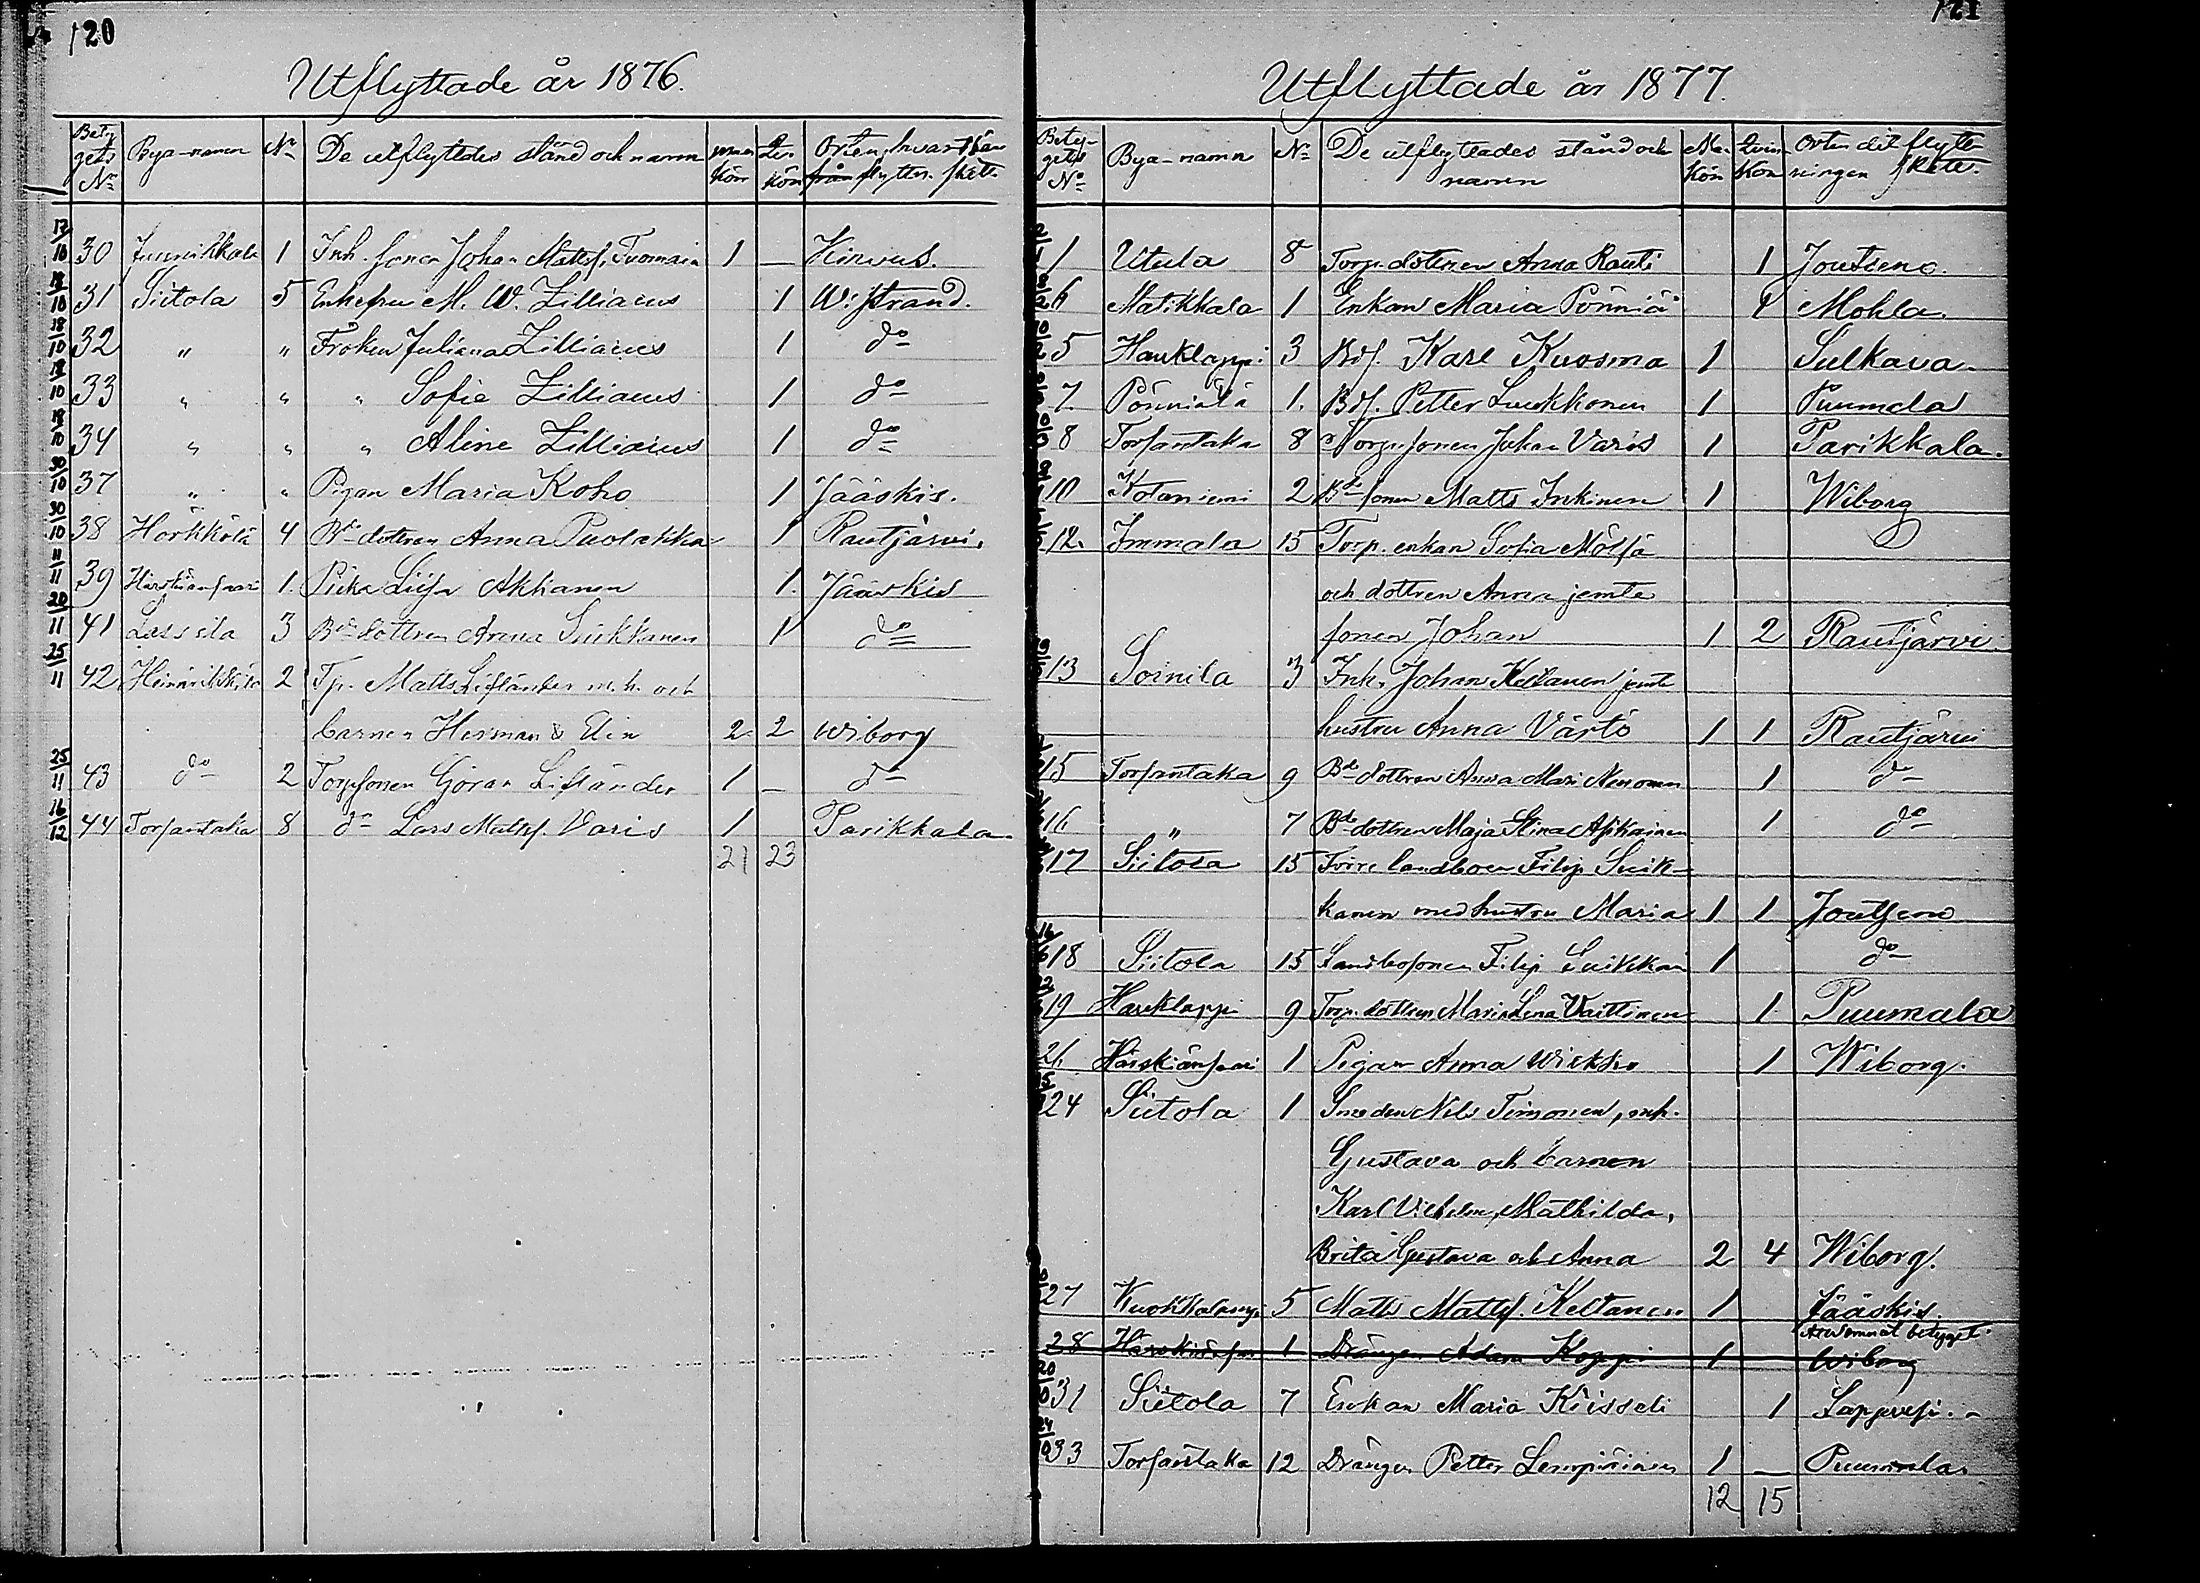 120
Utflyttade år 1876.
Betygets No Bya-namn No De utflyttades stånd och namn man kön kön Orten, hvart från flyttn. skett
17/10 30 1 Inh. sonen Johan Matts. Tuomain 1 — Kirvus.
18/10 31 Siitola 5 Enkefru M. W. Zilliacus 1 W:strand.
18/10 32 " " Fröken Juliana Zilliacus 1 do
18/10 33 " " " Sofie Zilliacus 1 do
18/10 34 " " " Aline Zilliacus 1 do
30/10 37 " " Pigan Maria Koho 1 Jääskis.
30/10 38 Härkkölä 4 Bde dottren Anna Puolakka 1 Rautjärvi.
11/11 39 1. Piika Liisa Akkanen 1. Jääskis
20/11 41 Lassila 3 Bde dottren Anna Suikkanen 1 do
25/11 42 2 Tp. Matts Lifländer m. h. och
barnen Herman & Elin 2 2 Wiborg
25/11 43 do 2 Torpsonen Göran Lifländer 1 — do
16/12 44 Torsantaka 8 do Lars Matts. Varis 1 Parikkala
21 23
121
Utflyttade år 1877.
Betygets No Bya-namn No De utflyttades stånd och namn Man kön Qvin kön Orten dit flyttningen skett.
1 Utula 8 Torp. dottren Anna Rauti 1 Joutseno.
6 Matikkala 1 Enkan Maria Pönniä 1 Mohla.
5 Hauklappi 3 Bds. Karl Kuosma 1 Sulkava
7. Pönniälä 1. Bds. Petter Luukkonen 1 Puumala
8 Torsantaka 8 Torpsonen Johan Varis 1 Parikkala.
10 Kotaniemi 2 Bde sonen Matts Inkinen 1 Wiborg
12. Immala 15 Torp. enkan Sofia Mölsä
och dottren Anna jemte
sonen Johan 1 2 Rautjärvi.
13 Soinila 3 Inh. Johan Keltanen jemte
hustru Anna Värtö 1 1 Rautjärvi
15 Torsantaka 9 Bde dottren Anna Mari Nenonen 1 do
16 " 7 Bde dottren Maja Stina Asikainen 1 do
17 Siitola 15 Förre landboen Filip Suik-
kanen med hustru Maria 1 1 Joutseno
16/ 18 Siitola 15 Landbosonen Filip Suikkan 1 do
19 Hauklappi 9 Torp. dottren Maria Lena Vaittinen 1 Puumala
21. Härskiänsaari 1 Pigan Anna 1 Wiborg.
24 Siitola 1 Smeden Nils Timonen, enh.
Gustava och barnen
Karl Vilhelm, Mathilda,
Brita Gustava och Anna 2 4 Wiborg.
27 Kuokkalampi 5 Matts Matts. Keltanen 1 Jääskis
28 1 Drängen Adam Koppi 1 betyget. Wiborg
31 Siitola 7 Enkan Maria Kiisseli 1 Lappvesi.
33 Torsantaka 12 Drängen Petter Lempiäinen 1 — Puumala.
12 15